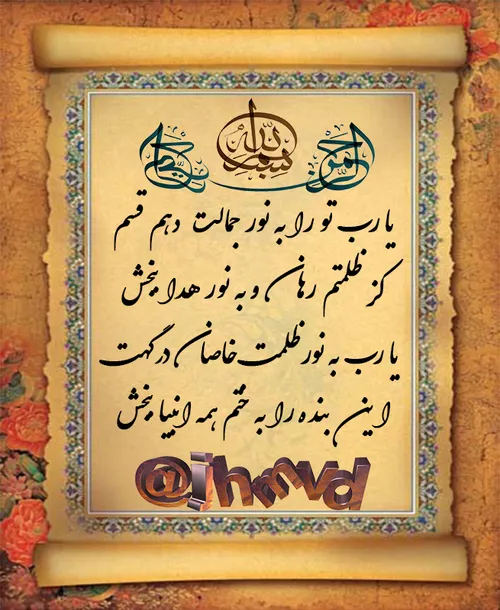 بسم الله الرحمن الرحیم
یا رب تو را به نور جمالت دهم قسم
کز ظلمتم رهان و به نور هدا بخش
یا رب به نور ظلمت خاصان درگهت
این بنده را به ختم همه انبیا بخش
@jhmvd